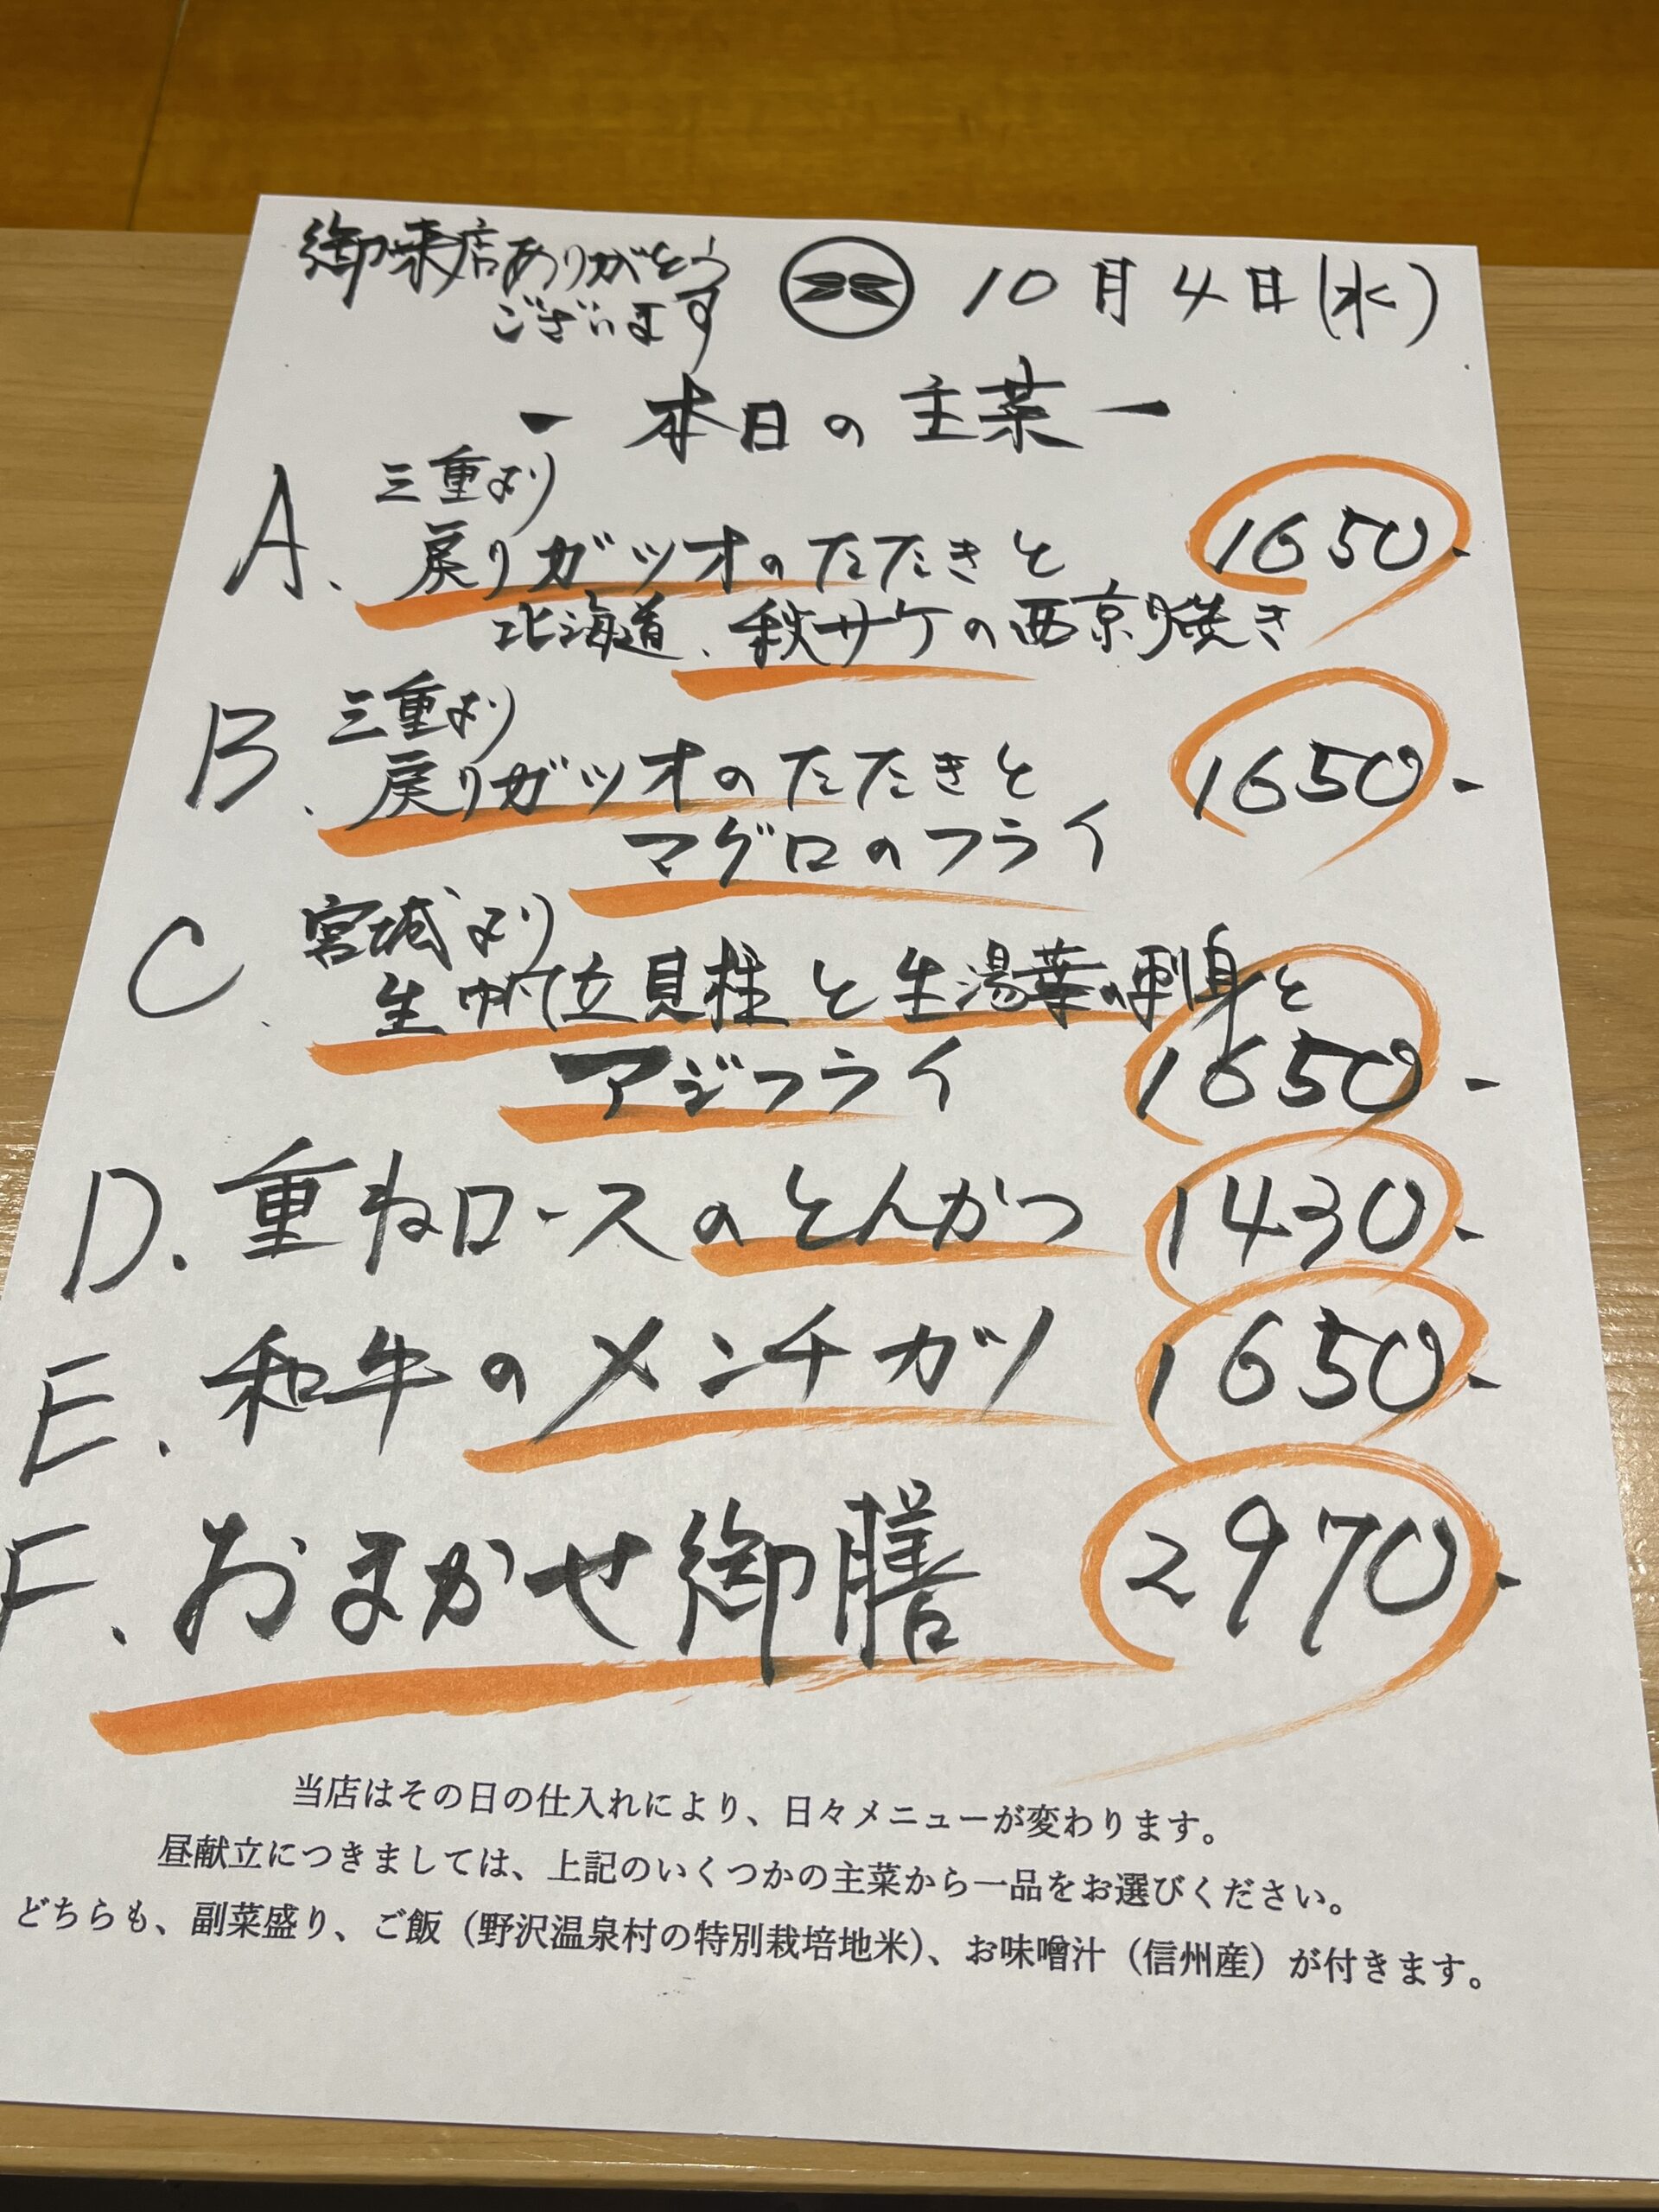 御来店ありがとう
ございます
10月4日(水)
ー本日の主菜ー
A. 三重より
戻りガツオのたたきと 1650-
北海道、秋サケの西京焼き
B. 三重より
戻りガツオのたたきと 1650-
マグロのフライ
C. 宮城より
生帆立貝柱と生湯葉の刺身と
アジフライ 1650-
D. 重ねロースのとんかつ 1430-
E. 和牛のメンチカツ 1650-
F. おまかせ御膳 2970-
当店はその日の仕入れにより、日々メニューが変わります。
昼献立につきましては、上記のいくつかの主菜から一品をお選びください。
どちらも、副菜盛り、ご飯（野沢温泉村の特別栽培地米）、お味噌汁（信州産）が付きます。